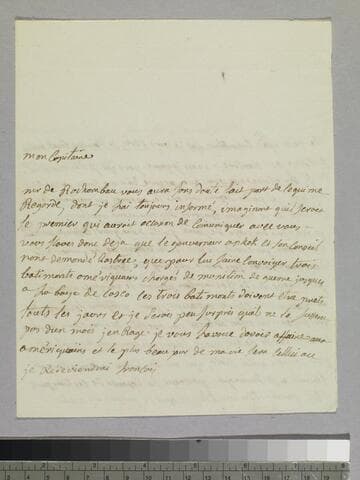 mon Capitaine
mr de Rochambau vous aura sans doute fait part de ce qui me
Regarde, dont je l'ai toujours informé, imaginant qu'il seroit
le premier qui auroit occasion de Comuniquer avec vous.
vous savez donc deja que le gouverneur et son Conseil
m'ont demandé que pour lui faire convoyer trois
batiments chargés de munition de guerre jusques
a la baye de Casco ces trois batiments doivent etre prets
touts les jours et je serois peu surpris qu'ils ne le fussent
pas d'un mois j'enrage je vous l'avoue d'avoir affaire aux
amériquains et le plus beau jour de ma vie sera celui ou
je Redeviendrai